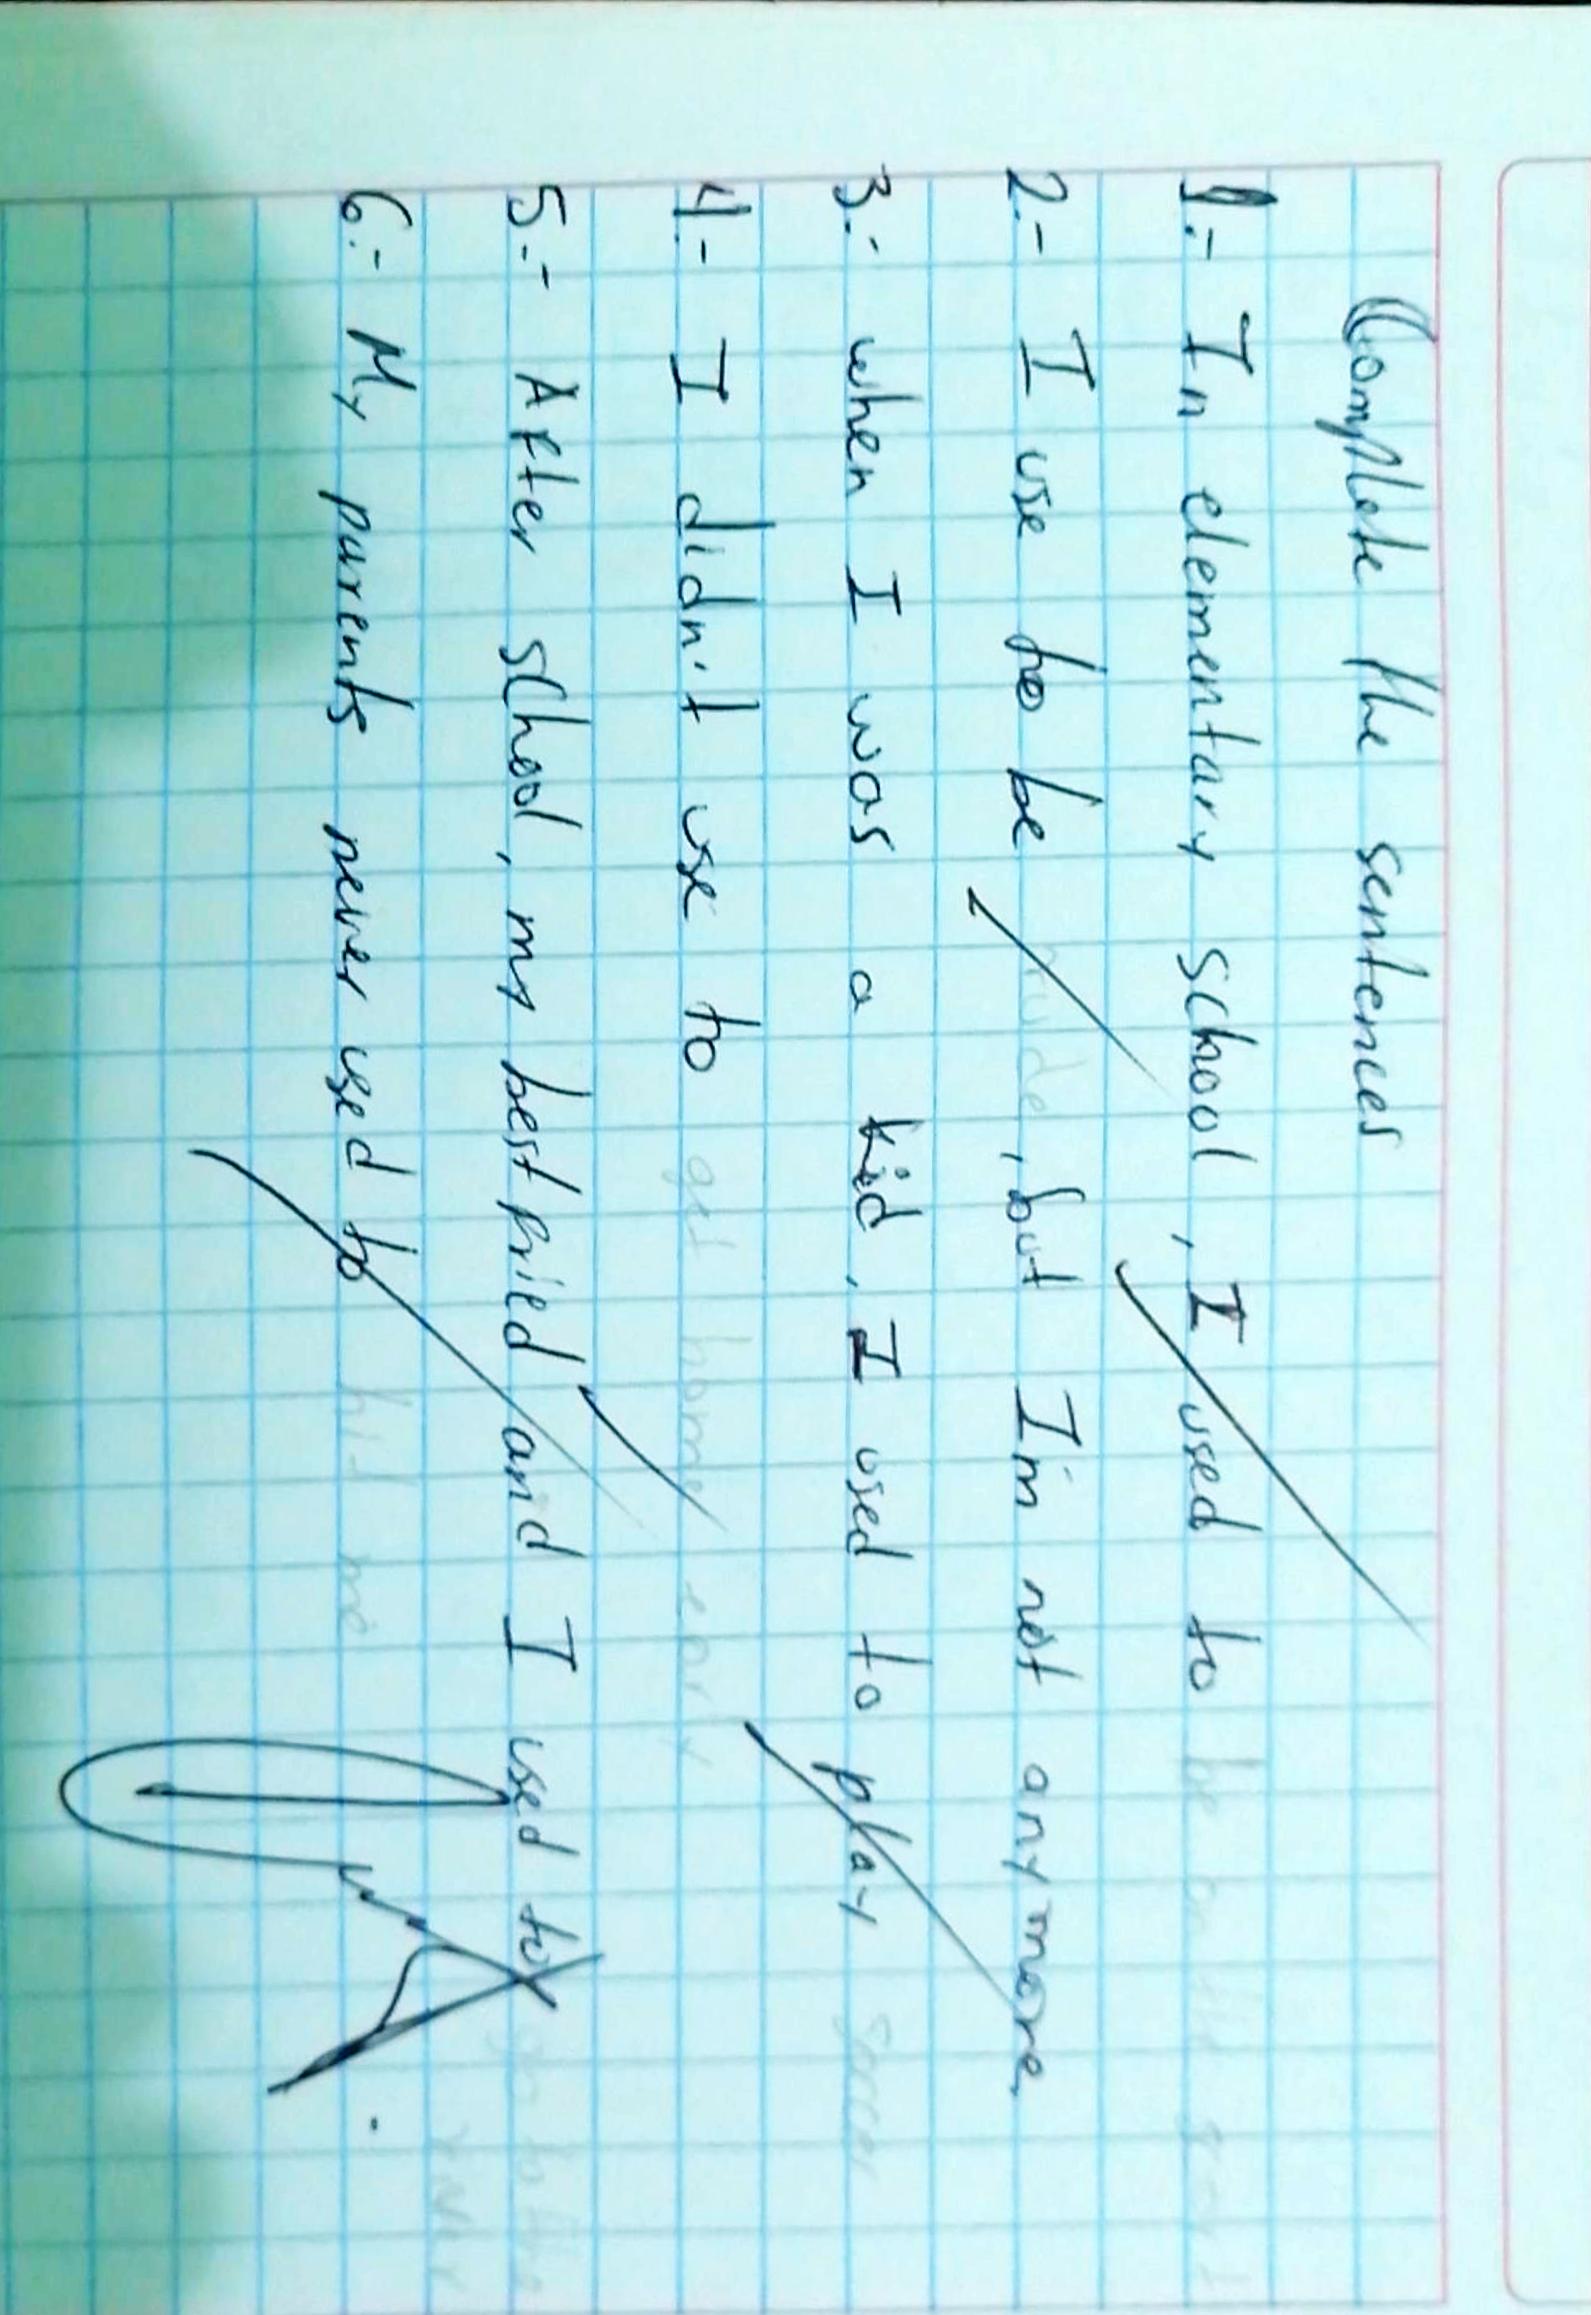 Complete the sentences
1.- In elementary school, I used to be on the
2.- I use to be rude, but I'm not anymore.
3.- when I was a kid, I used to play soccer
4.- I didn't use to get home early
5.- After school, my best fried and I used to go to the
river
6.- My parents never used to hit me